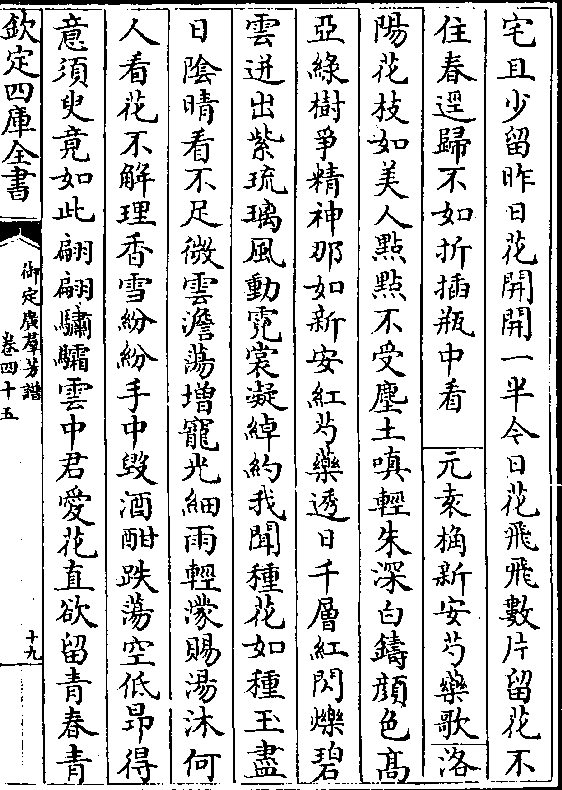 宅且少留昨日花開開一半今日花飛飛數片留花不
住春逕歸不如折插瓶中看 元袁桷新安芍藥歌 洛
陽花枝如美人點點不受塵土嗔輕朱深白鑄顔色高
亞綠樹爭精神那如新安紅芍藥透日千層紅閃爍碧
雲迸出紫琉璃風動霓裳凝綽約我聞種花如種玉盡
日陰晴看不足微雲澹蕩增寵光細雨輕濛賜湯沐何
人看花不解理香雪紛紛手中毁酒酣跌蕩空低昻得
意須臾竟如此翩翩驌驦雲中君愛花直欲留青春青
欽定四庫全書
御定廣羣芳譜
卷四十五
十九